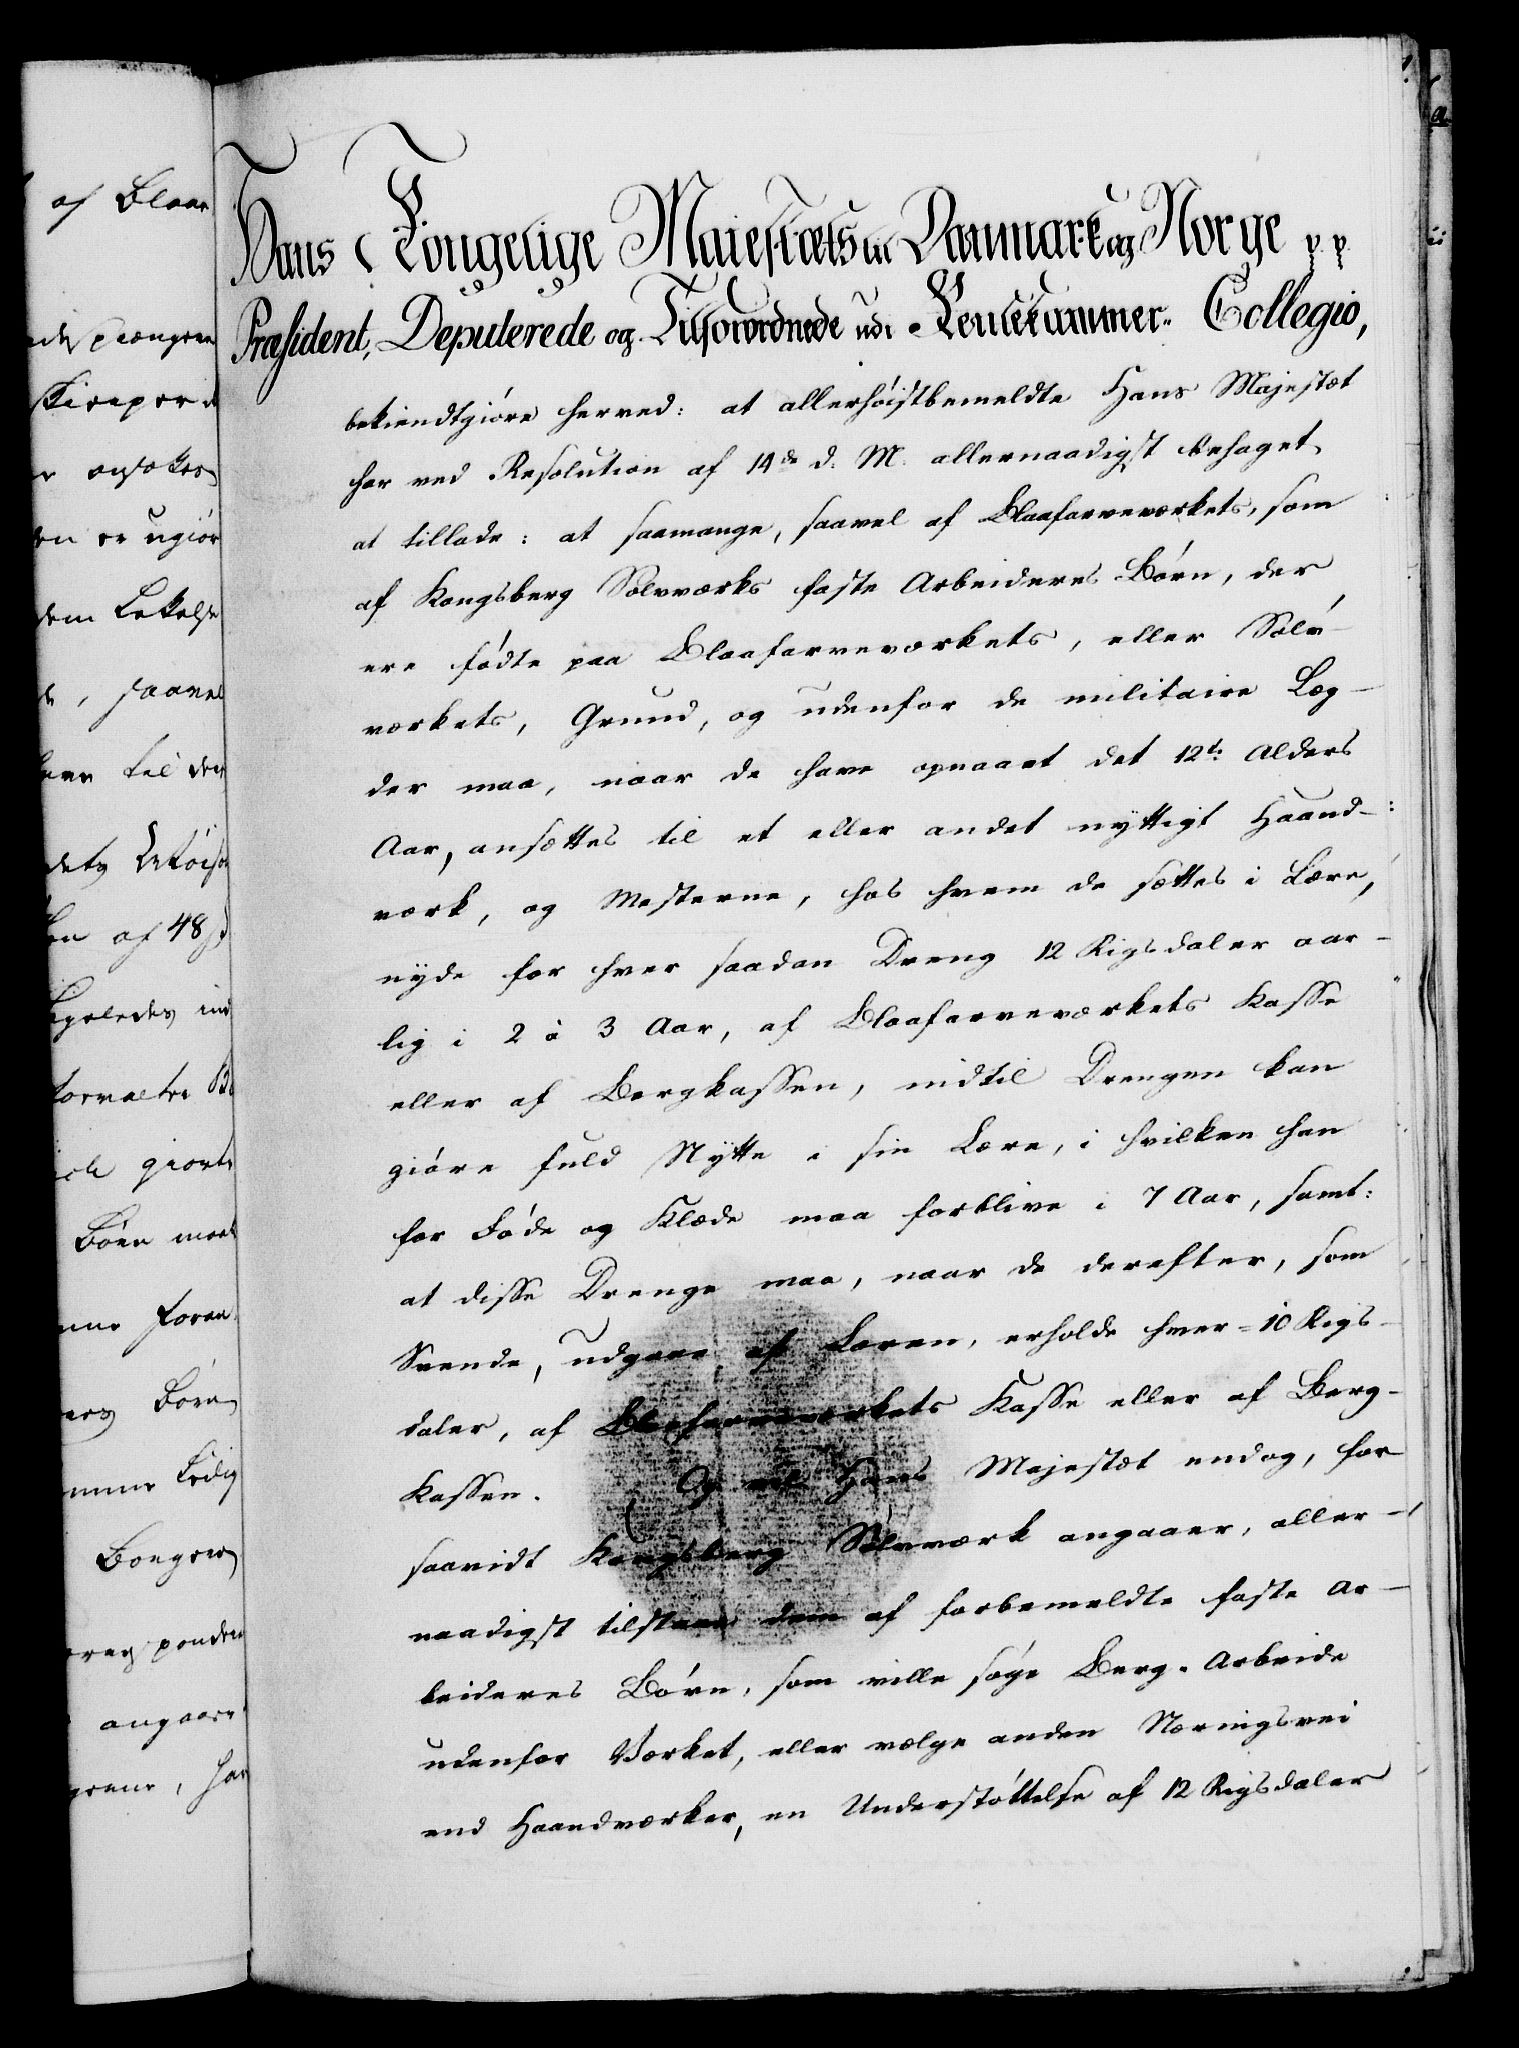 af Blaa
saavel
til den
af 48 s
Børn
Hans Kongelige Majestæts til Danmark og Norge p. p.
Præsident, Deputerede og Tilforordnede udi Rentekammer-Collegio,
bekiendtgiøre herved: at allerhøistbemeldte Hans Majestæt
har ved Resolution af 14de d. M. allernaadigst behaget
at tillade: at saamange, saavel af Blaafarveværkets, som
af Kongsberg Sølvværks faste Arbeideres Børn, der
ere fødte paa Blaafarveværkets, eller Sølv-
værkets, Grund, og udenfor de militaire Læg-
der maa, naar de have opnaaet det 12te Alders
Aar, ansættes til et eller andet nyttigt Haand-
værk, og Mesterne, hos hvem de sættes i Lære,
nyde for hver saadan Dreng 12 Rigsdaler aar-
lig i 2 à 3 Aar, af Blaafarveværkets Kasse
eller af Bergkassen, indtil Drengen kan
giøre fuld Nytte i sin Lære, i hvilken han
for Føde og Klæde maa forblive i 7 Aar, samt:
at disse Drenge maa, naar de derefter, som
Svende, udgaae af Læren, erholde hver 10 Rigs-
daler, af Blaafarveværkets Kasse eller af Berg-
Kassen. Og vil Hans Majestæt endog, for
saavidt Kongsberg Sølvværk angaaer, aller-
naadigst tilstaae dem af forbemeldte faste Ar-
beideres Børn, som ville søge Berg-Arbeide
udenfor Værket, eller vælge anden Næringsvei
end Haandværker, en Understøttelse af 12 Rigsdaler